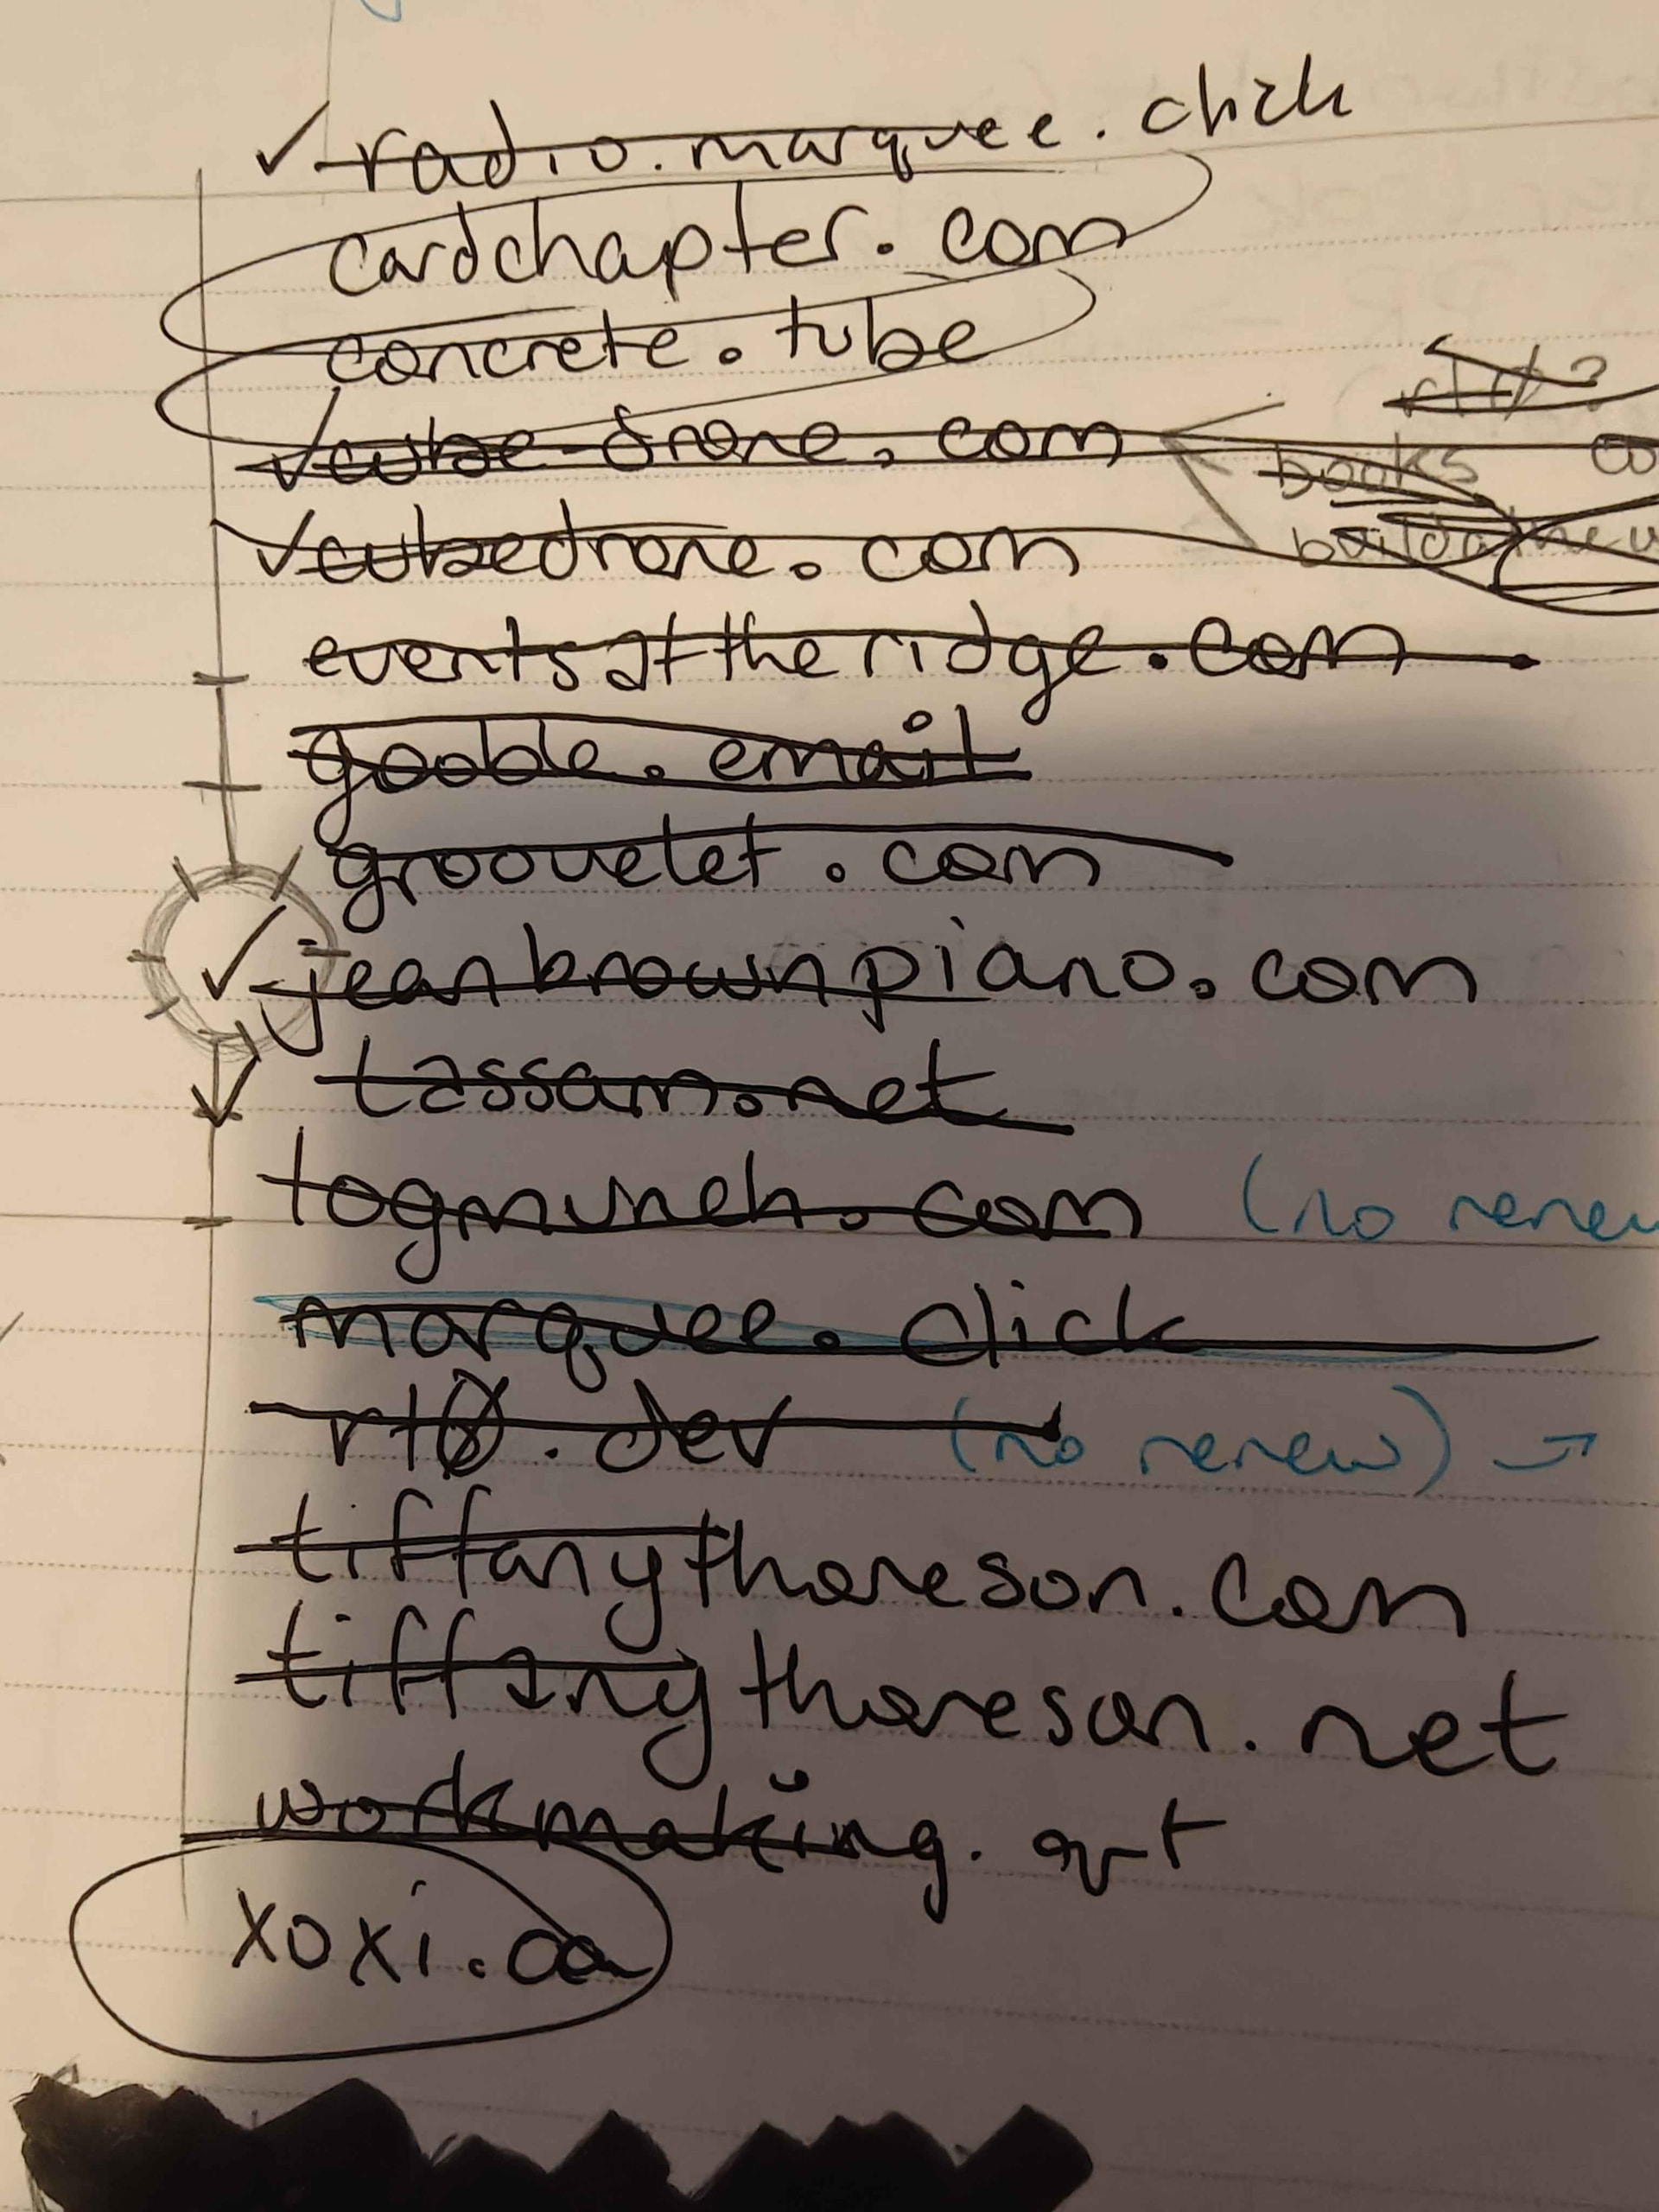 radio.marquee.click
cardchapter.com
concrete.tube
rt0?
cube-drone.com
books co
cubedrone.com
eventsattheridge.com
gooble.email
groovelet.com
jeanbrownpiano.com
tassam.net
togmunch.com (no renew
marquee.click
rt0.dev (no renew) →
tiffanythoreson.com
tiffanythoreson.net
workmaking.
xoxi.ca